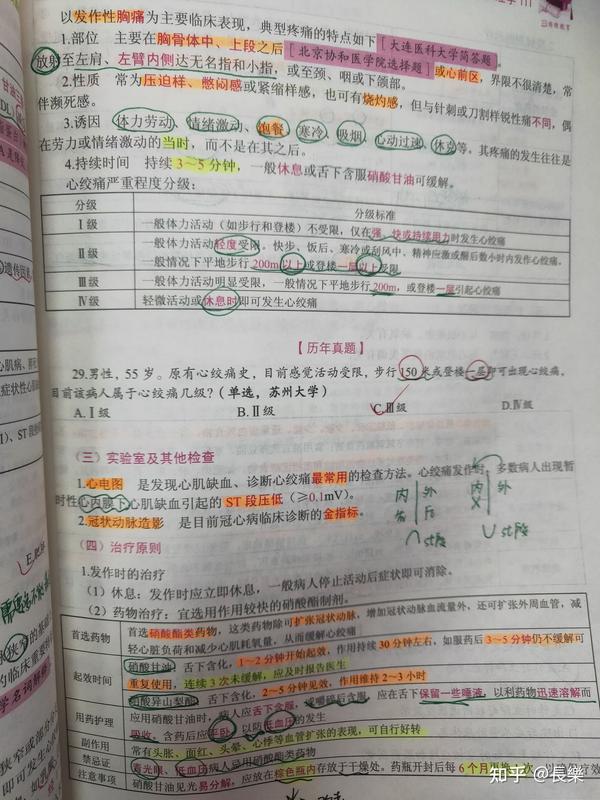 以发作性胸痛为主要临床表现，典型疼痛的特点如下
1.部位 主要在胸骨体中、上段之后[大连医科大学简答题]
[北京协和医学院选择题]或心前区，界限不很清楚，常
放射至左肩、左臂内侧达无名指和小指，或至颈、咽或下颌部。
2.性质 常为压迫样、憋闷感或紧缩样感，也可有烧灼感，但与针刺或刀割样锐性痛不同，偶
伴濒死感。
3.诱因 体力劳动、情绪激动、饱餐、寒冷、吸烟、心动过速、休克等。其疼痛的发生往往是
在劳力或情绪激动的当时，而不是在其之后。
4.持续时间 持续3～5分钟，一般休息或舌下含服硝酸甘油可缓解。
心绞痛严重程度分级：
分级 分级标准
Ⅰ级 一般体力活动（如步行和登楼）不受限，仅在强、快或持续用力时发生心绞痛
Ⅱ级 一般体力活动轻度受限。快步、饭后、寒冷或刮风中、精神应激或醒后数小时内发作心绞痛。
一般情况下平地步行200m以上或登楼一层以上受限
Ⅲ级 一般体力活动明显受限，一般情况下平地步行200m，或登楼一层引起心绞痛
Ⅳ级 轻微活动或休息时即可发生心绞痛
【历年真题】
29.男性，55岁。原有心绞痛史，目前感觉活动受限，步行150米或登楼一层即可出现心绞痛，
目前该病人属于心绞痛几级？（单选，苏州大学）
A.Ⅰ级 B.Ⅱ级 C.Ⅲ级 D.Ⅳ级
（三）实验室及其他检查
1.心电图 是发现心肌缺血、诊断心绞痛最常用的检查方法。心绞痛发作时，多数病人出现暂
时性心内膜下心肌缺血引起的ST段压低（≥0.1mV）。
2.冠状动脉造影 是目前冠心病临床诊断的金指标。
内 外 内 外
ST段 ST段
（四）治疗原则
1.发作时的治疗
（1）休息：发作时应立即休息，一般病人停止活动后症状即可消除。
（2）药物治疗：宜选用作用较快的硝酸酯制剂。
首选药物 首选硝酸酯类药物，这类药物除可扩张冠状动脉，增加冠状动脉血流量外，还可扩张外周血管，减
轻心脏负荷和减少心肌耗氧量，从而缓解心绞痛
起效时间 硝酸甘油 舌下含化，1～2分钟开始起效，作用持续30分钟左右，如服药后3～5分钟仍不缓解可
重复使用，连续3次未缓解，应及时报告医生
硝酸异山梨酯 舌下含化，2～5分钟见效，作用维持2～3小时
用药护理 应用硝酸甘油时，病人应舌下含服，或嚼碎后含服，应在舌下保留一些唾液，以利药物迅速溶解而
吸收。含药后应平卧，以防低血压的发生
副作用 常有头胀、面红、头晕、心悸等血管扩张的表现，可自行好转
禁忌证 青光眼、低血压病人忌用硝酸酯类药物
注意事项 硝酸甘油见光易分解，应放在棕色瓶内存放于干燥处，药瓶开封后每6个月更换1次
知乎 @長樂